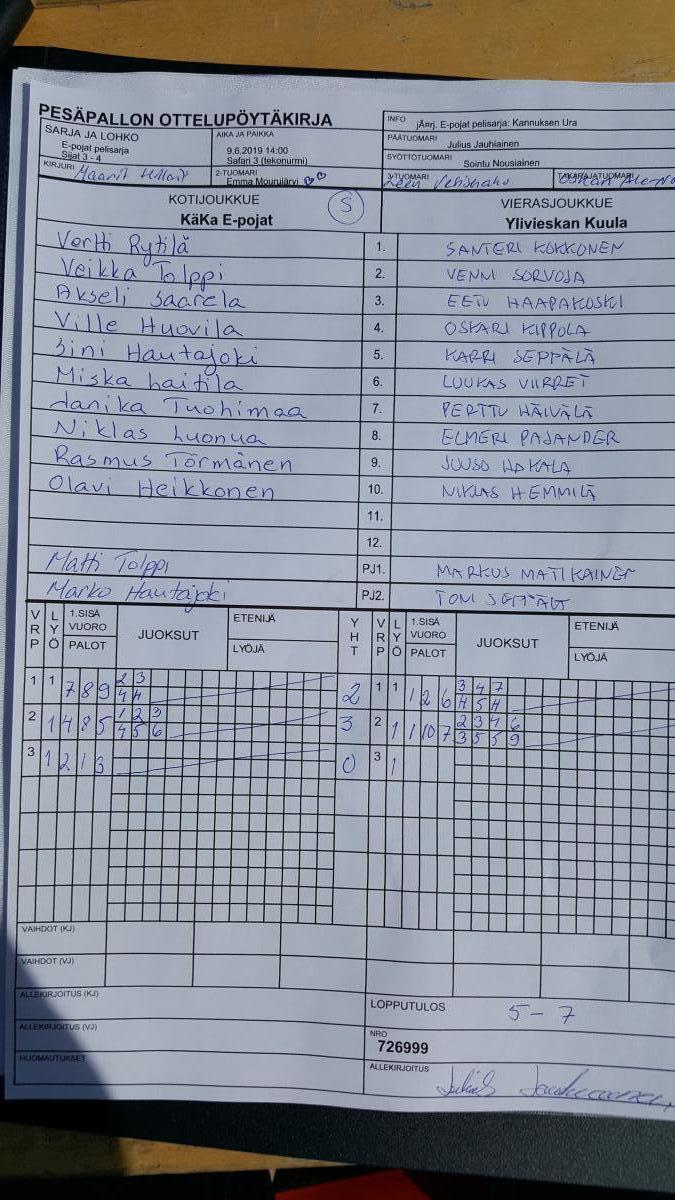 PESÄPALLON OTTELUPÖYTÄKIRJA
SARJA JA LOHKO
E-pojat pelisarja
Sijat 3 - 4
AIKA JA PAIKKA
9.6.2019 14:00
Safari 3 (tekonurmi)
KIRJURI Maarit
2-TUOMARI
Emma Mourujärvi
INFO jÄ¤rj. E-pojat pelisarja: Kannuksen Ura
PÄÄTUOMARI
Julius Jauhiainen
SYÖTTÖTUOMARI
Sointu Nousiainen
3-TUOMARI
TAKARAJATUOMARI
KOTIJOUKKUE
KäKa E-pojat
S
VIERASJOUKKUE
Ylivieskan Kuula
Vertti Rytilä 1. SANTERI KOKKONEN
Veikka Tolppi 2. VENNI SORVOJA
Akseli Saarela 3. EETU HAAPAKOSKI
Ville Huovila 4. OSKARI KIPPOLA
Sini Hautajoki 5. KARRI SEPPÄLÄ
Miska Laitila 6. LUUKAS VIIRRET
Janika Tuohimaa 7. PERTTU HÄIVÄLÄ
Niklas Luonua 8. ELMERI PAJANDER
Rasmus Törmänen 9. JUUSO HAKALA
Olavi Heikkonen 10. NIKLAS HEMMILÄ
11.
12.
Matti Tolppi PJ1. MARKUS MATIKAINEN
Marko Hautajoki PJ2. TONI
VRP LYÖ 1.SISÄ VUORO PALOT JUOKSUT ETENIJÄ LYÖJÄ YHT VRP LYÖ 1.SISÄ VUORO PALOT JUOKSUT ETENIJÄ LYÖJÄ
1 1 7 8 9 2 3 2 1 1 1 2 6 3 4 7
4 4 4 5 4
2 1 4 8 5 1 2 3 3 2 1 1 10 7 2 3 4 6
4 5 6 3 5 5 9
3 1 2 1 3 0 3 1
VAIHDOT (KJ)
VAIHDOT (VJ)
ALLEKIRJOITUS (KJ)
ALLEKIRJOITUS (VJ)
HUOMAUTUKSET
LOPPUTULOS 5 - 7
NRO
726999
ALLEKIRJOITUS